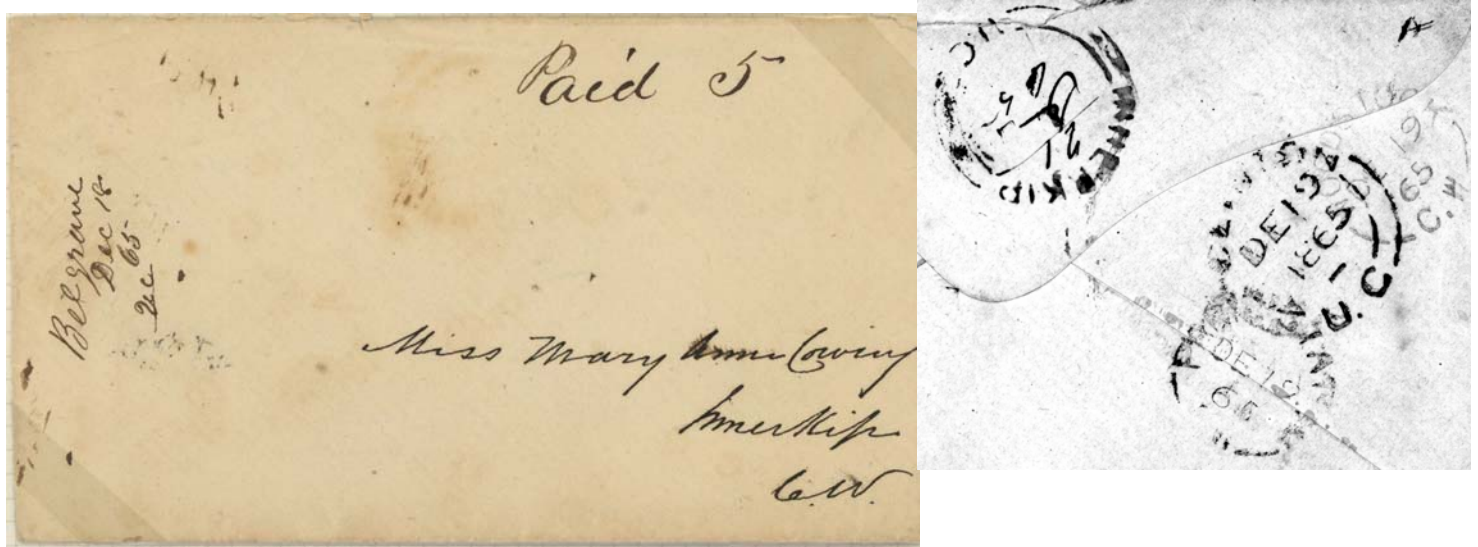 Paid 5
Belgrave
Dec 18
Dec 65
Miss Mary Anne Cowing
Innerkip
C.W.
INNERKIP
21
CLINTON
DE 19
1865
U.C.
19
65
C.W
DE 19
65